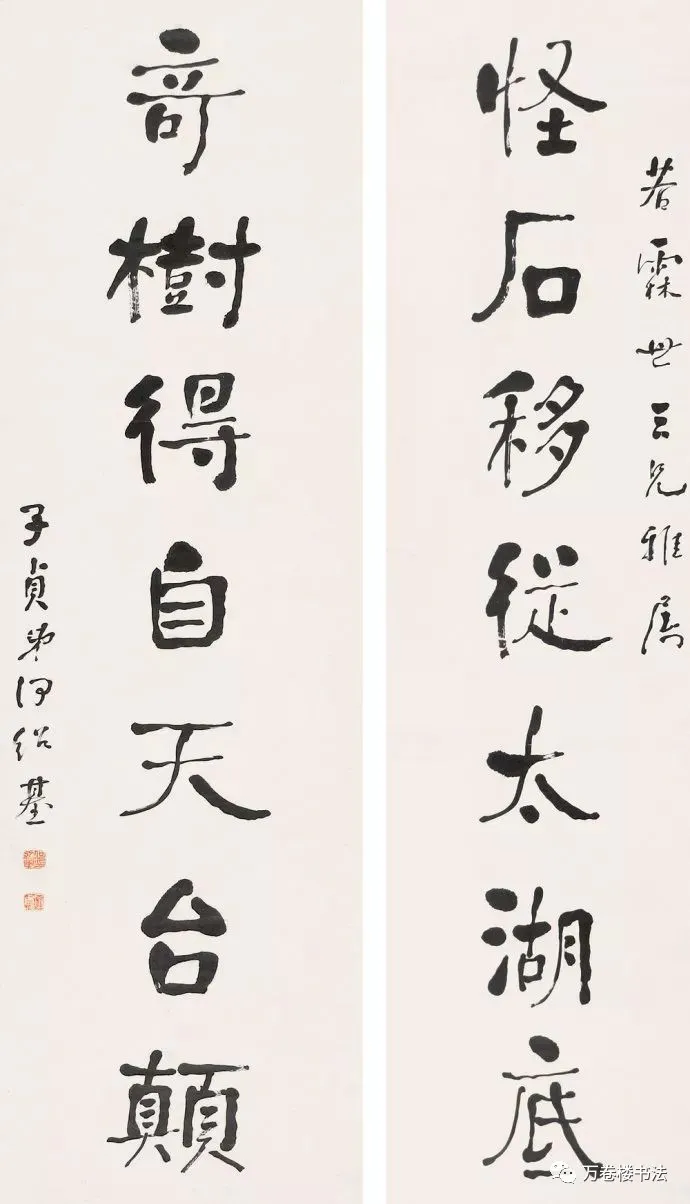 若霖世三兄雅属
怪石移從太湖底
奇樹得自天台顛
子貞弟何紹基
万卷楼书法